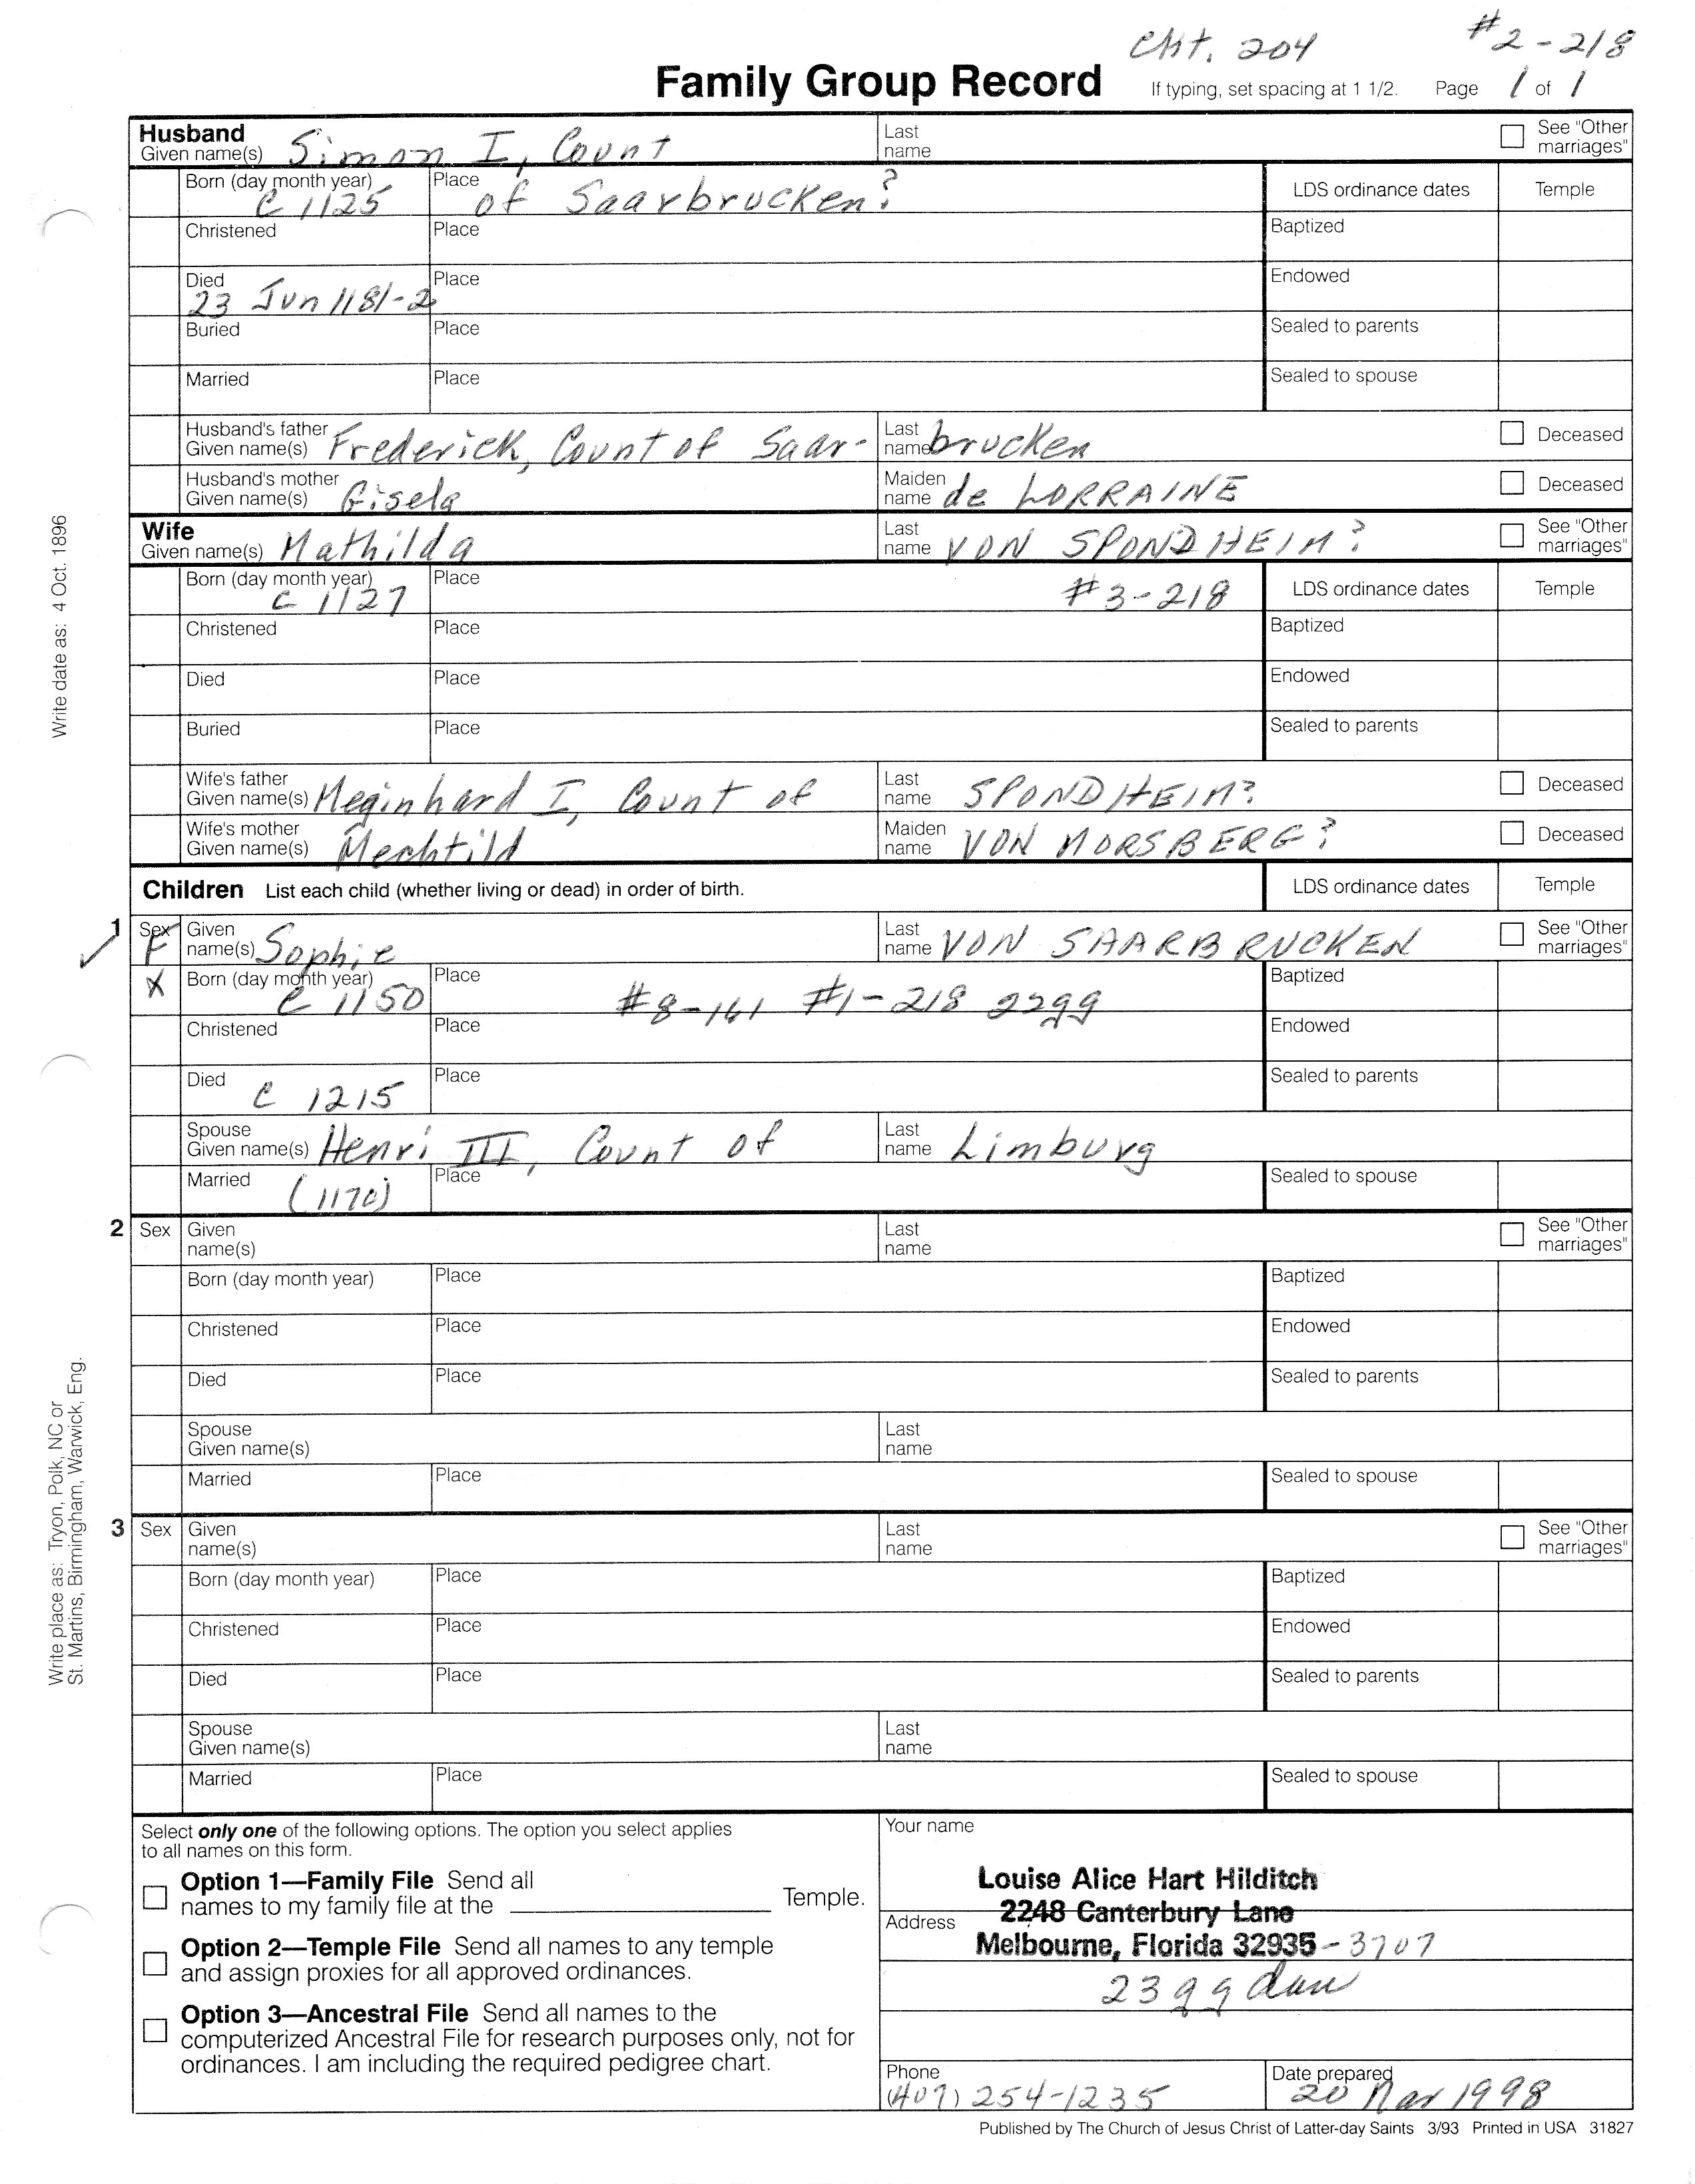 Cht. 204 #2-218
Family Group Record If typing, set spacing at 1 1/2. Page 1 of 1
Husband
Given name(s) Simon I, Count Last name See "Other marriages"
Born (day month year) C 1125 Place of Saarbrucken? LDS ordinance dates Temple
Christened Place Baptized
Died 23 Jun 1181-2 Place Endowed
Buried Place Sealed to parents
Married Place Sealed to spouse
Husband's father Given name(s) Frederick, Count of Saar- Last name brucken Deceased
Husband's mother Given name(s) Gisela Maiden name de LORRAINE Deceased
Wife
Given name(s) Mathilda Last name VON SPONDHEIM? See "Other marriages"
Born (day month year) C 1127 Place #3-218 LDS ordinance dates Temple
Christened Place Baptized
Died Place Endowed
Buried Place Sealed to parents
Wife's father Given name(s) Meginhard I, Count of Last name SPONDHEIM? Deceased
Wife's mother Given name(s) Mechtild Maiden name VON MORSBERG? Deceased
Children List each child (whether living or dead) in order of birth. LDS ordinance dates Temple
1 Sex F Given name(s) Sophie Last name VON SAARBRUCKEN See "Other marriages"
X Born (day month year) C 1150 Place #8-161 #1-218 22gg Baptized
Christened Place Endowed
Died C 1215 Place Sealed to parents
Spouse Given name(s) Henri III, Count of Last name Limburg
Married Place Sealed to spouse
2 Sex Given name(s) Last name See "Other marriages"
Born (day month year) Place Baptized
Christened Place Endowed
Died Place Sealed to parents
Spouse Given name(s) Last name
Married Place Sealed to spouse
3 Sex Given name(s) Last name See "Other marriages"
Born (day month year) Place Baptized
Christened Place Endowed
Died Place Sealed to parents
Spouse Given name(s) Last name
Married Place Sealed to spouse
Select only one of the following options. The option you select applies
to all names on this form.
Option 1—Family File Send all
names to my family file at the Temple.
Option 2—Temple File Send all names to any temple
and assign proxies for all approved ordinances.
Option 3—Ancestral File Send all names to the
computerized Ancestral File for research purposes only, not for
ordinances. I am including the required pedigree chart.
Your name
Louise Alice Hart Hilditch
Address 2248 Canterbury Lane
Melbourne, Florida 32935-3707
23gg dau
Phone (407) 254-1235
Date prepared 20 Mar 1998
Published by The Church of Jesus Christ of Latter-day Saints 3/93 Printed in USA 31827
Write date as: 4 Oct. 1896
Write place as: Tryon, Polk, NC or
St. Martins, Birmingham, Warwick, Eng.